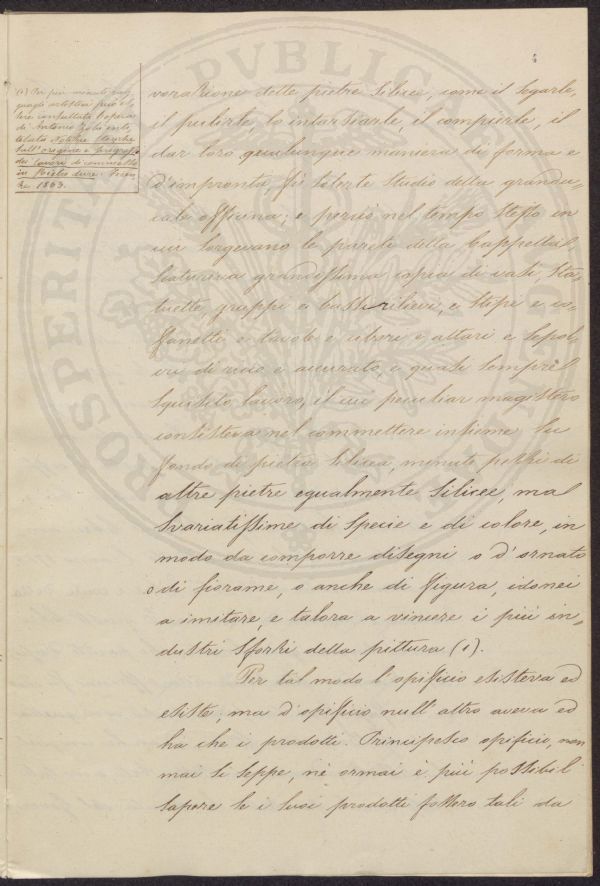 (1) Per più minuti rag-
guagli artistici può es-
sere consultata l'opera
di Antonio Zobi inti-
tolata Notizie storiche
sull'origine e progressi
dei lavori di commesso
in Pietre dure. Firen-
ze 1853.
vorazione delle pietre silicee, come il segarle,
il pulirle lo intarsiarle, il compierle, il
dar loro qualunque maniera di forma e
d'impronta fù solerte studio della grandu-
cale officina; e perciò nel tempo stesso in
cui sorgevano le pareti della Cappella,
scaturiva grandissima copia di vasi, sta-
tuette, gruppi e bassirilievi, e stipi e co-
fanetti e tavole e cibori e altari e sepol-
cri di ricco e accurato, e quasi sempre
squisito lavoro, il cui peculiar magistero
consisteva nel commettere insieme su
fondo di pietra silicea, minuti pezzi di
altre pietre egualmente silicee, ma
svariatissime di specie e di colore, in
modo da comporre disegni o d'ornato
o di fiorame, o anche di figura, idonei
a imitare, e talora a vincere i più in-
dustri sforzi della pittura (1).
Per tal modo l'opificio esisteva ed
esiste; ma d'opificio null'altro aveva ed
ha che i prodotti. Principesco opificio, non
mai si seppe, nè ormai è più possibil
sapere se i suoi prodotti fossero tali da
PROSPERITA PVBLICA